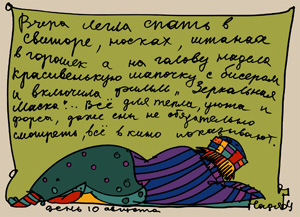 Вчера легла спать в
свитере, носках, штанах
в горошек а на голову надела
красивенькую шапочку с бисером
и включила фильм "Зеркальная
маска"... Всё для тепла, уюта и
форсу, даже сны не обязательно
смотреть, всё в кино показывают.
день 10 августа